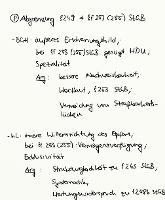 ① Abgrenzung § 249 ↔ §§ 253 (255) StGB
- BGH äußeres Erscheinungsbild,
bei §§ 253 (255) StGB genügt HDU,
Spezialität
Arg: bessere Nachweisbarkeit,
Wortlaut, § 253 StGB,
Vermeidung von Strafbarkeits-
lücken
- hL innere Willensrichtung des Opfers,
bei §§ 253 (255) Vermögensverfügung,
Exklusivität
Arg: Strukturgleichheit zu § 263 StGB,
Systematik,
Wertungswiderspruch zu § 248b StGB